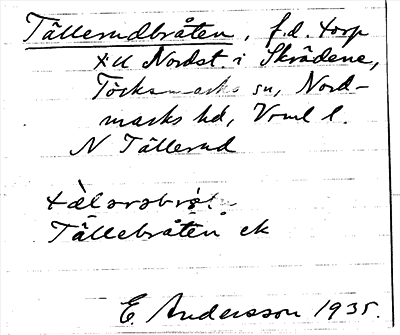 Tällerudbråten, f.d. torp
till Nordst. i Skrädene,
Töcksmarks sn, Nord-
marks hd, Vrml l.
N Tällerud
Tällebråten ek
E. Andersson 1935.